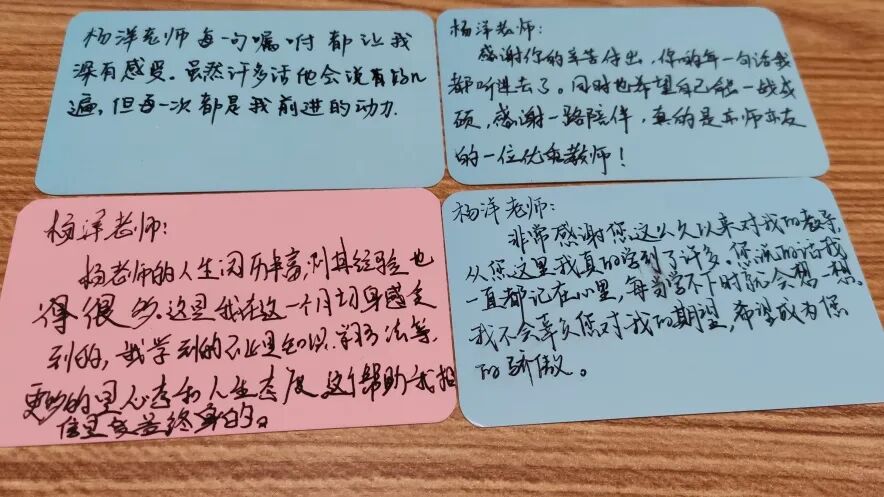 杨洋老师每一句嘱咐都让我
深有感受。虽然许多话他会说有好n
遍,但每一次都是我前进的动力.
杨洋老师:
感谢你的辛苦付出,你的每一句话我
都听进去了。同时也希望自己能一战成
硕,感谢一路陪伴,真的是亦师亦友
的一位优秀教师!
杨洋老师:
杨老师的人生阅历丰富,经验也
得很多。这是我在这一个月切身感受
到的,我学到的不止是知识、学习方法等,
更多的是心态和人生态度,这个帮助我相
信是受益终身的。
杨洋老师:
非常感谢您这么久以来对我的教导,
从您这里我真的学到了许多,您说的话我
一直都记在心里,每当学不下时就会想一想,
我不会辜负您对我的期望,希望成为您
的骄傲。